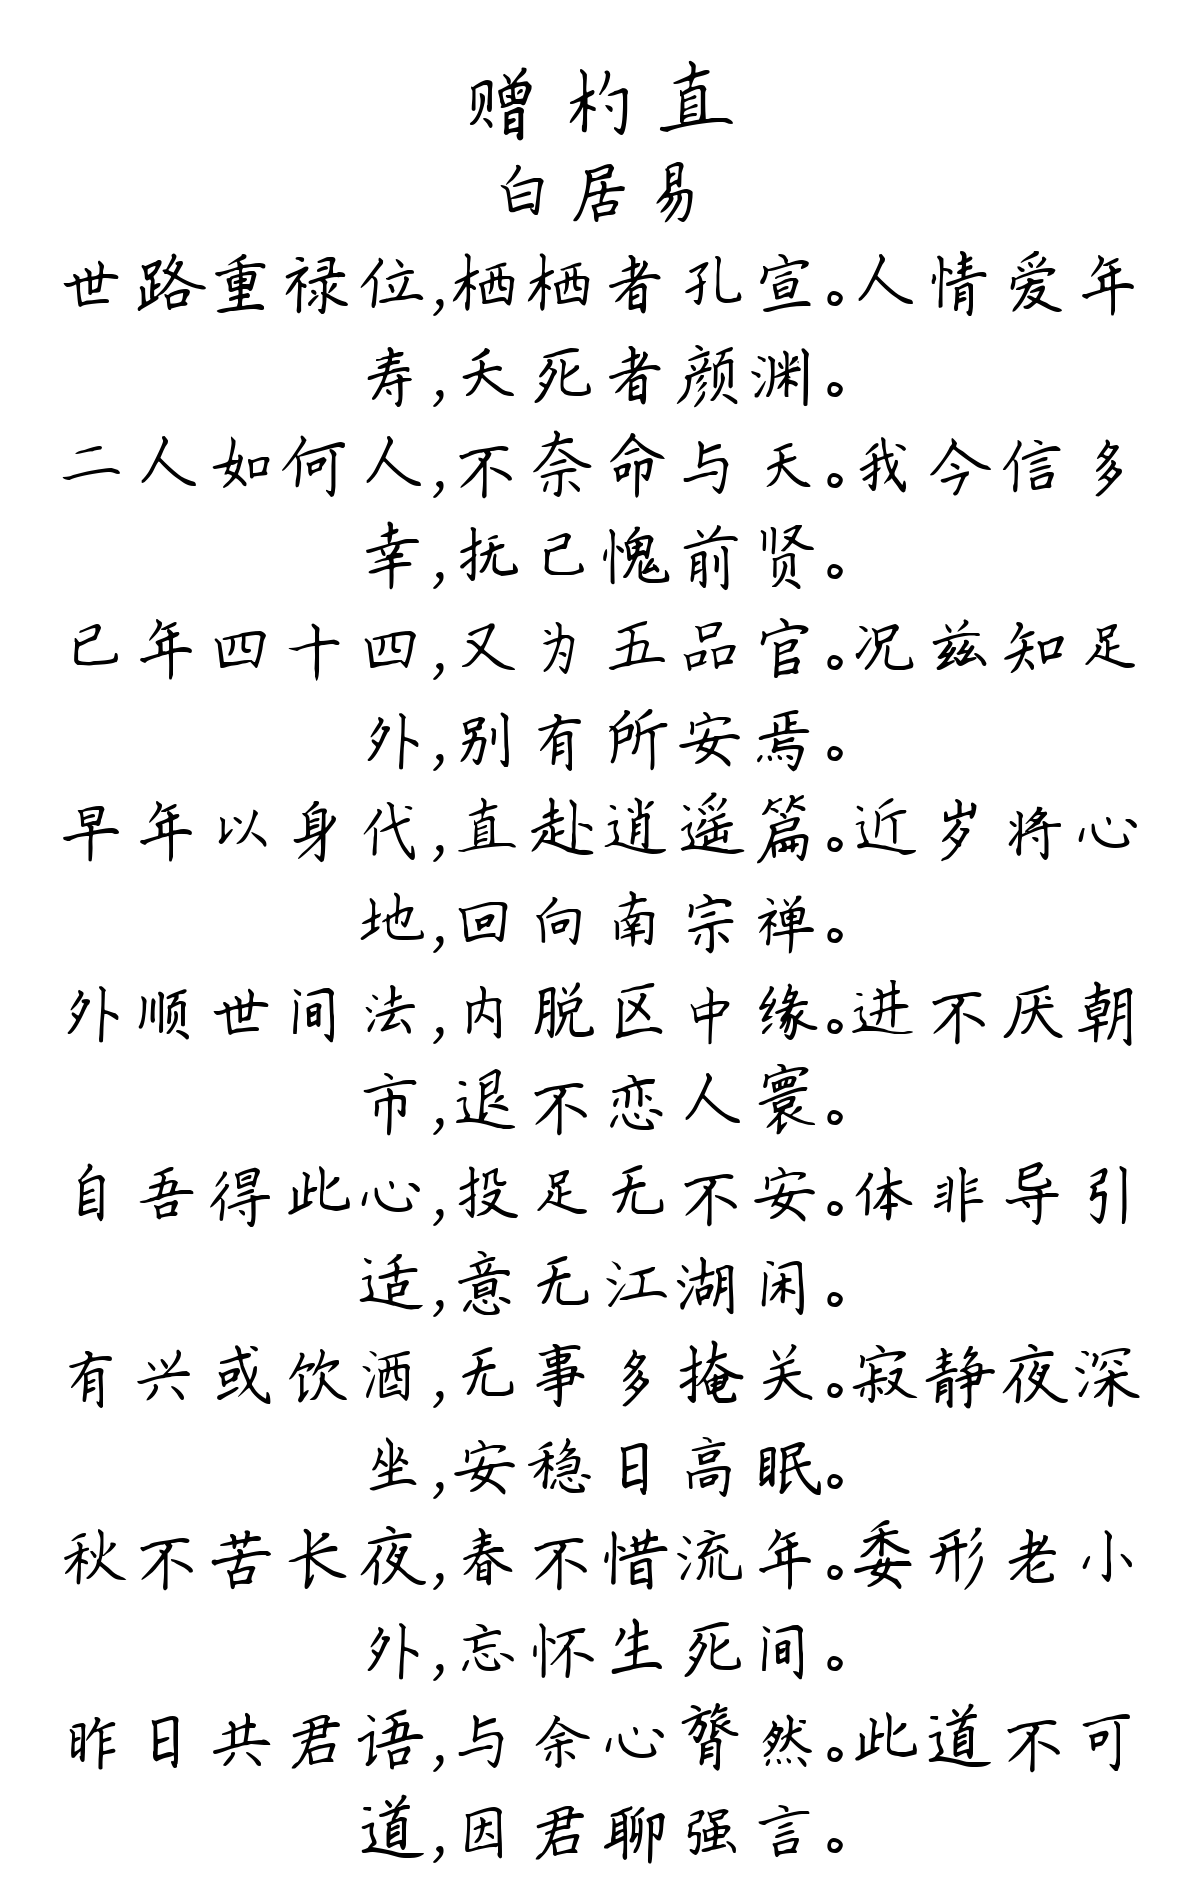 赠杓直
白居易
世路重禄位,栖栖者孔宣。人情爱年
寿,夭死者颜渊。
二人如何人,不奈命与天。我今信多
幸,抚己愧前贤。
已年四十四,又为五品官。况兹知足
外,别有所安焉。
早年以身代,直赴逍遥篇。近岁将心
地,回向南宗禅。
外顺世间法,内脱区中缘。进不厌朝
市,退不恋人寰。
自吾得此心,投足无不安。体非导引
适,意无江湖闲。
有兴或饮酒,无事多掩关。寂静夜深
坐,安稳日高眠。
秋不苦长夜,春不惜流年。委形老小
外,忘怀生死间。
昨日共君语,与余心膂然。此道不可
道,因君聊强言。